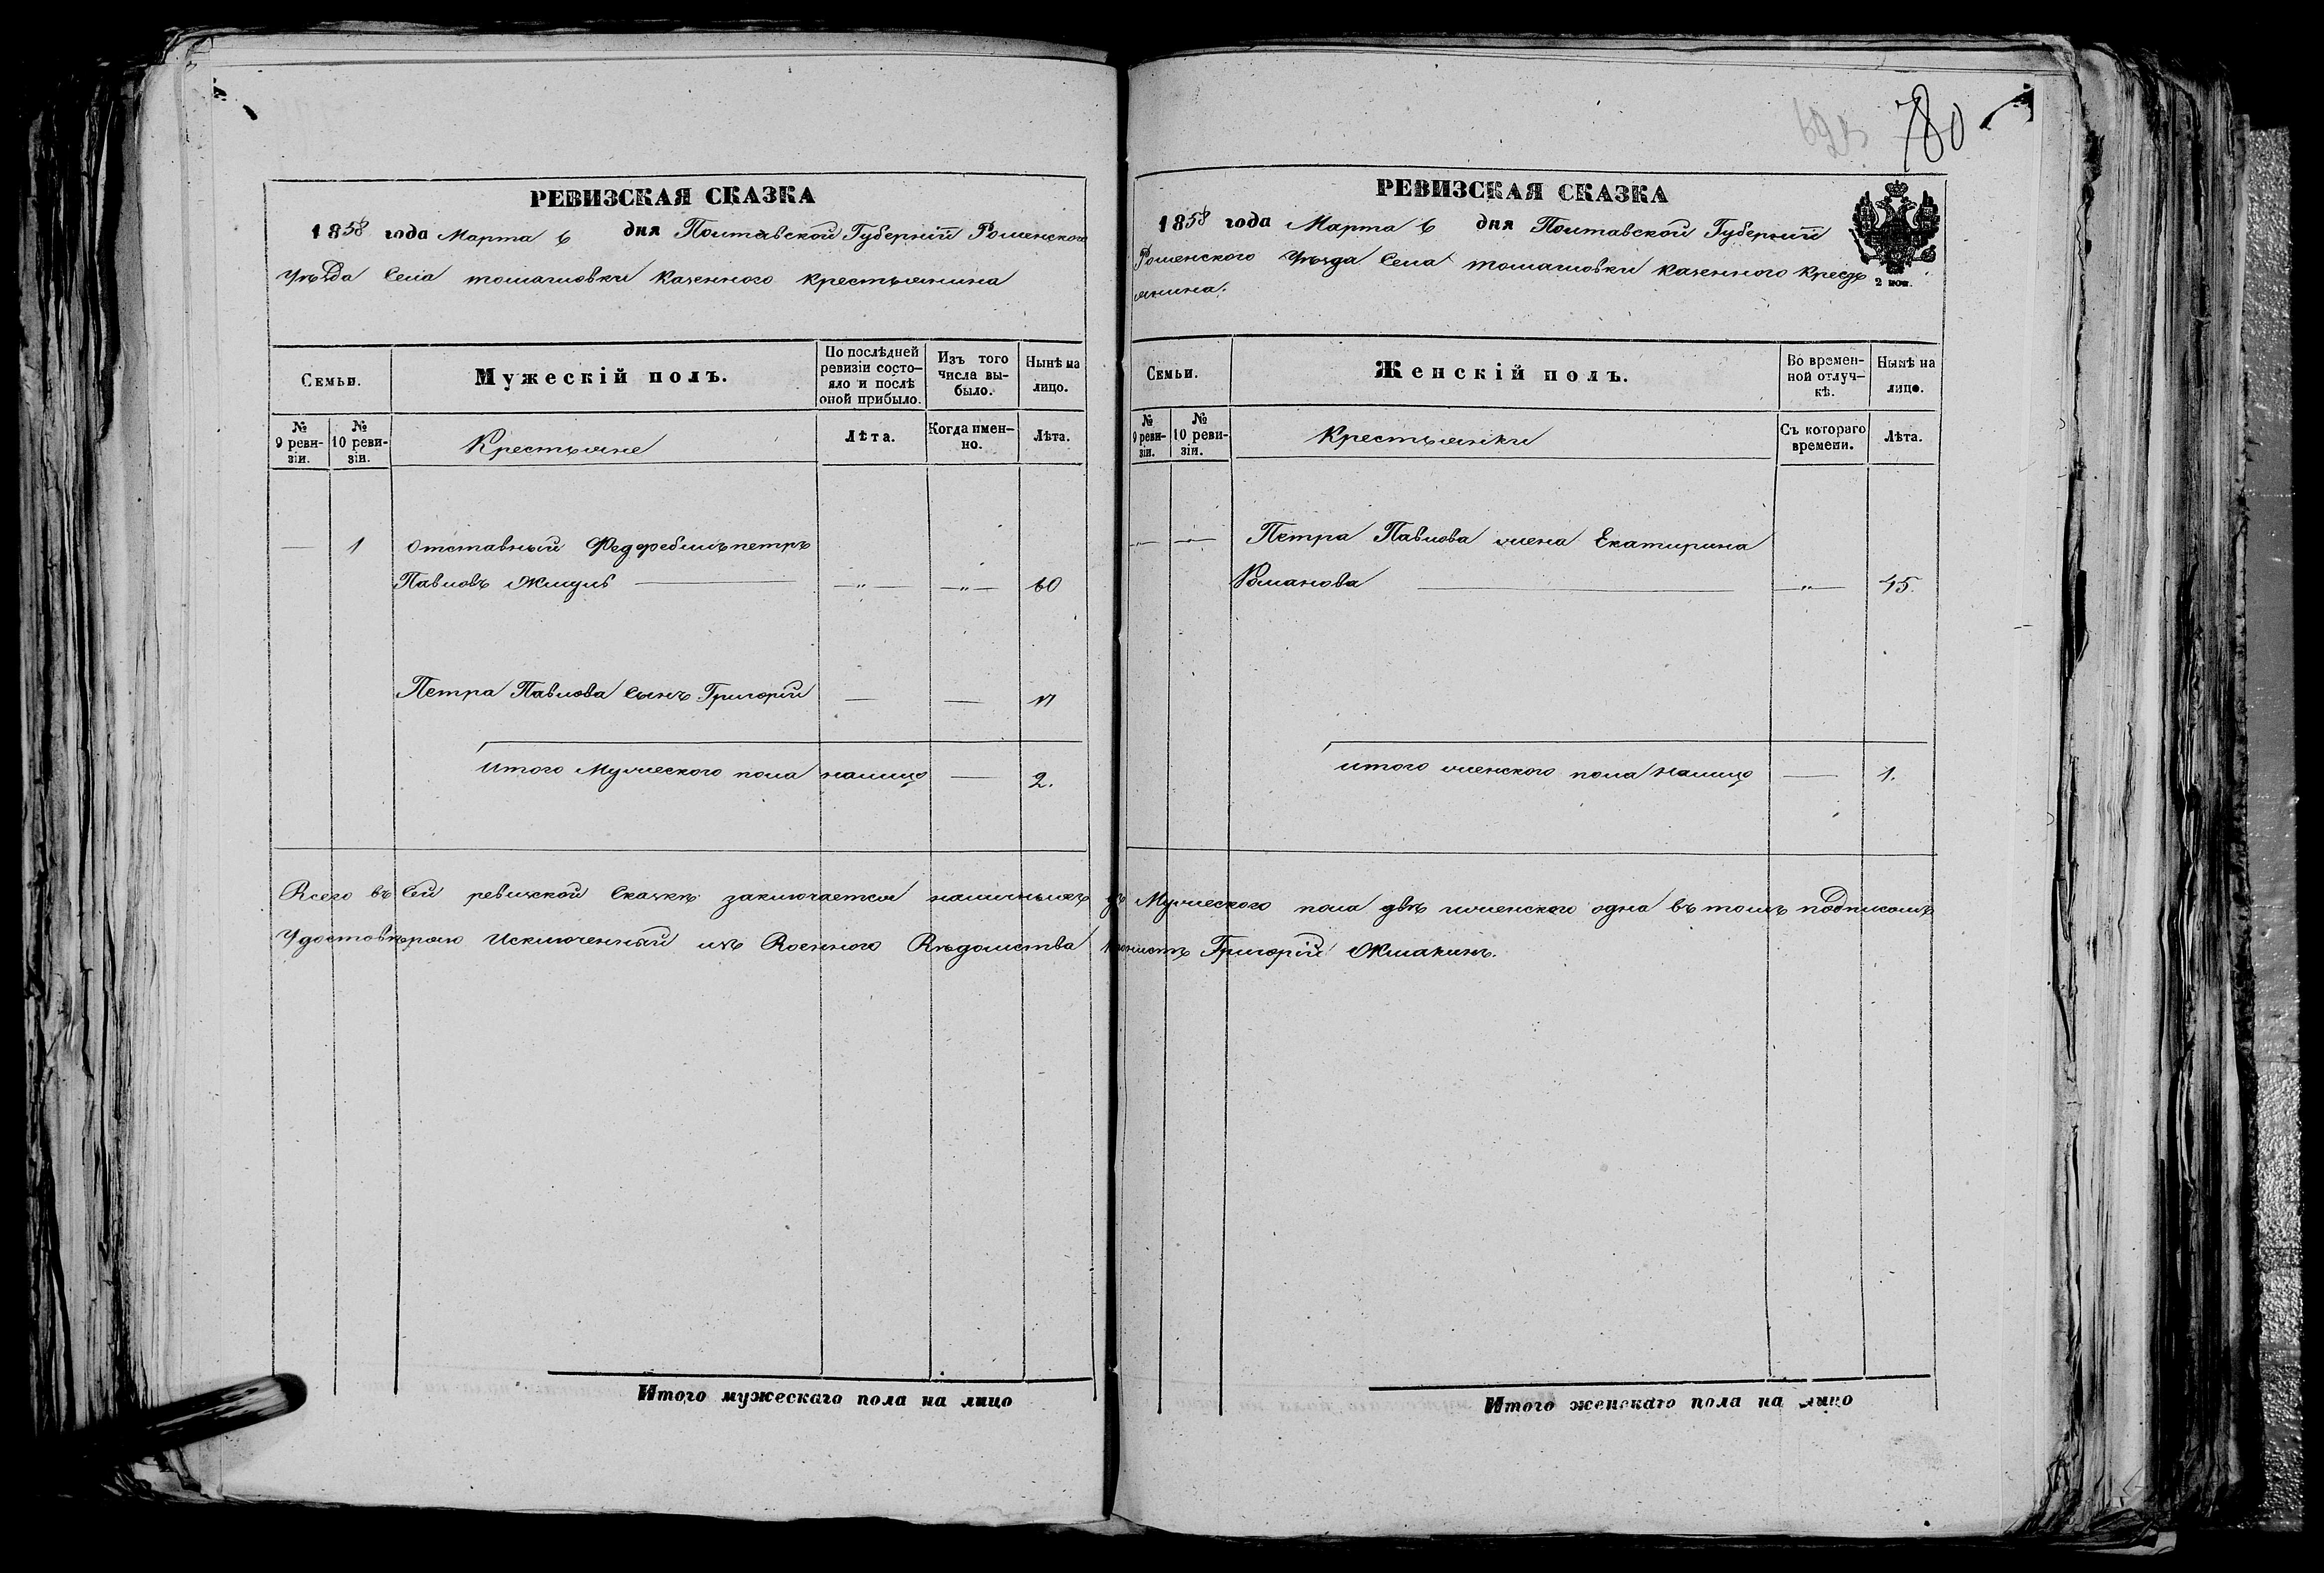 780
РЕВИЗСКАЯ СКАЗКА
1858 года Марта 6 дня Полтавской Губерніи Роменского
Уѣзда Села томашовки казенного крестьянина
Семьи.
Мужескій полъ.
По послѣдней ревизіи состо-
яло и послѣ оной прибыло.
Изъ того числа вы-
было.
Нынѣ на лицо.
№ 9 реви-
зіи.
№ 10 реви-
зіи.
Крестьяне
Лѣта.
Когда имен-
но.
Лѣта.
— 1 Отставный петръ
Павловъ — „ — — „ — 60
Петра Павлова сынъ Григорій — — 17
итого Мужеского пола налицо — 2.
РЕВИЗСКАЯ СКАЗКА
1858 года Марта 6 дня Полтавской Губерніи
Роменского Уѣзда Села томашовки казенного Кресть
янина.
2 коп.
Семьи.
Женскій полъ.
Во времен-
ной отлуч-
кѣ.
Нынѣ на лицо.
№ 9 реви-
зіи.
№ 10 реви-
зіи.
Крестьянки
Съ котораго времени.
Лѣта.
— „ — — „ — Петра Павлова жена Екатирина
Романова — „ — 45.
итого женского пола налицо — 1.
Всего въ Сей ревизкой Сказкѣ заключается наличныхъ Мужеского пола двѣ женского одна въ томъ подписомъ
Удостовѣряю Исключенный изъ Военного Вѣдомства Григорій
Итого мужескаго пола на лицо
Итого женскаго пола на лицо